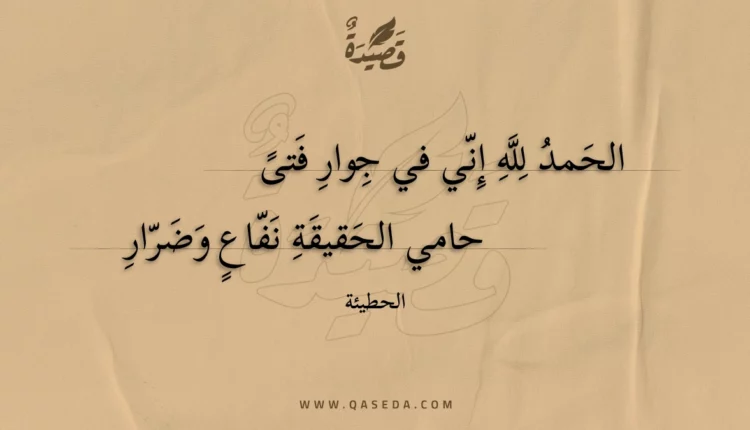 قَصِيدَةٌ
الحَمدُ لِلَّهِ إِنّي في جِوارِ فَتىً
حامي الحَقيقَةِ نَفّاعٍ وَضَرّارِ
الحطيئة
WWW.QASEDA.COM